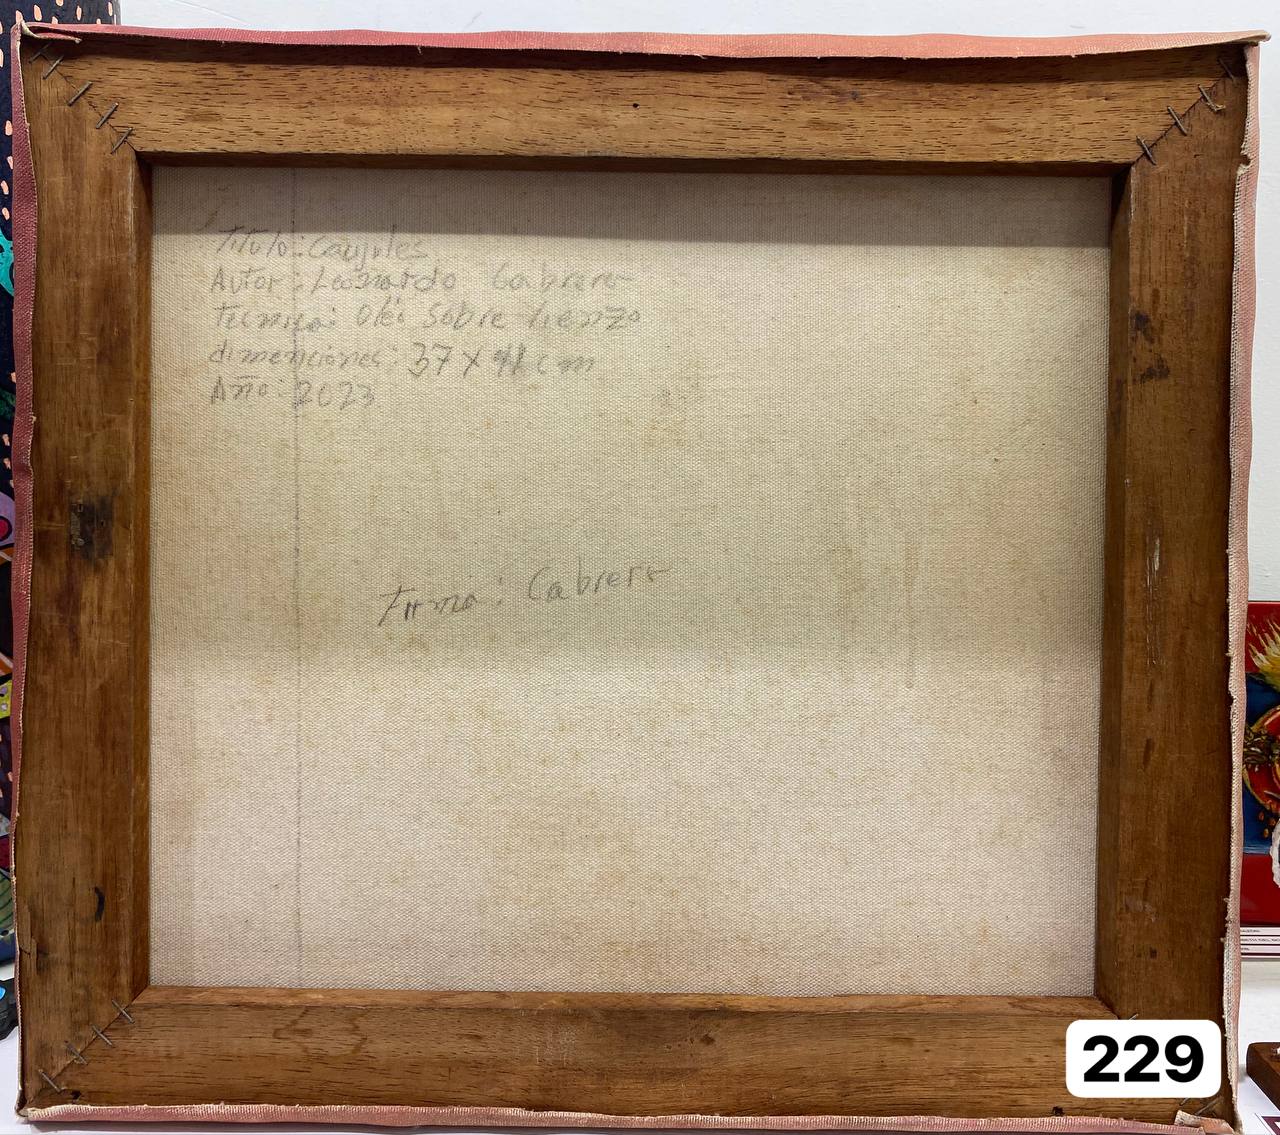 Titulo: Caujiles
Autor: Leonardo Cabrera
Tecnica: Oleo Sobre lienzo
dimenciones: 37 x 41 cm
Año: 2023
Firma: Cabrera
229